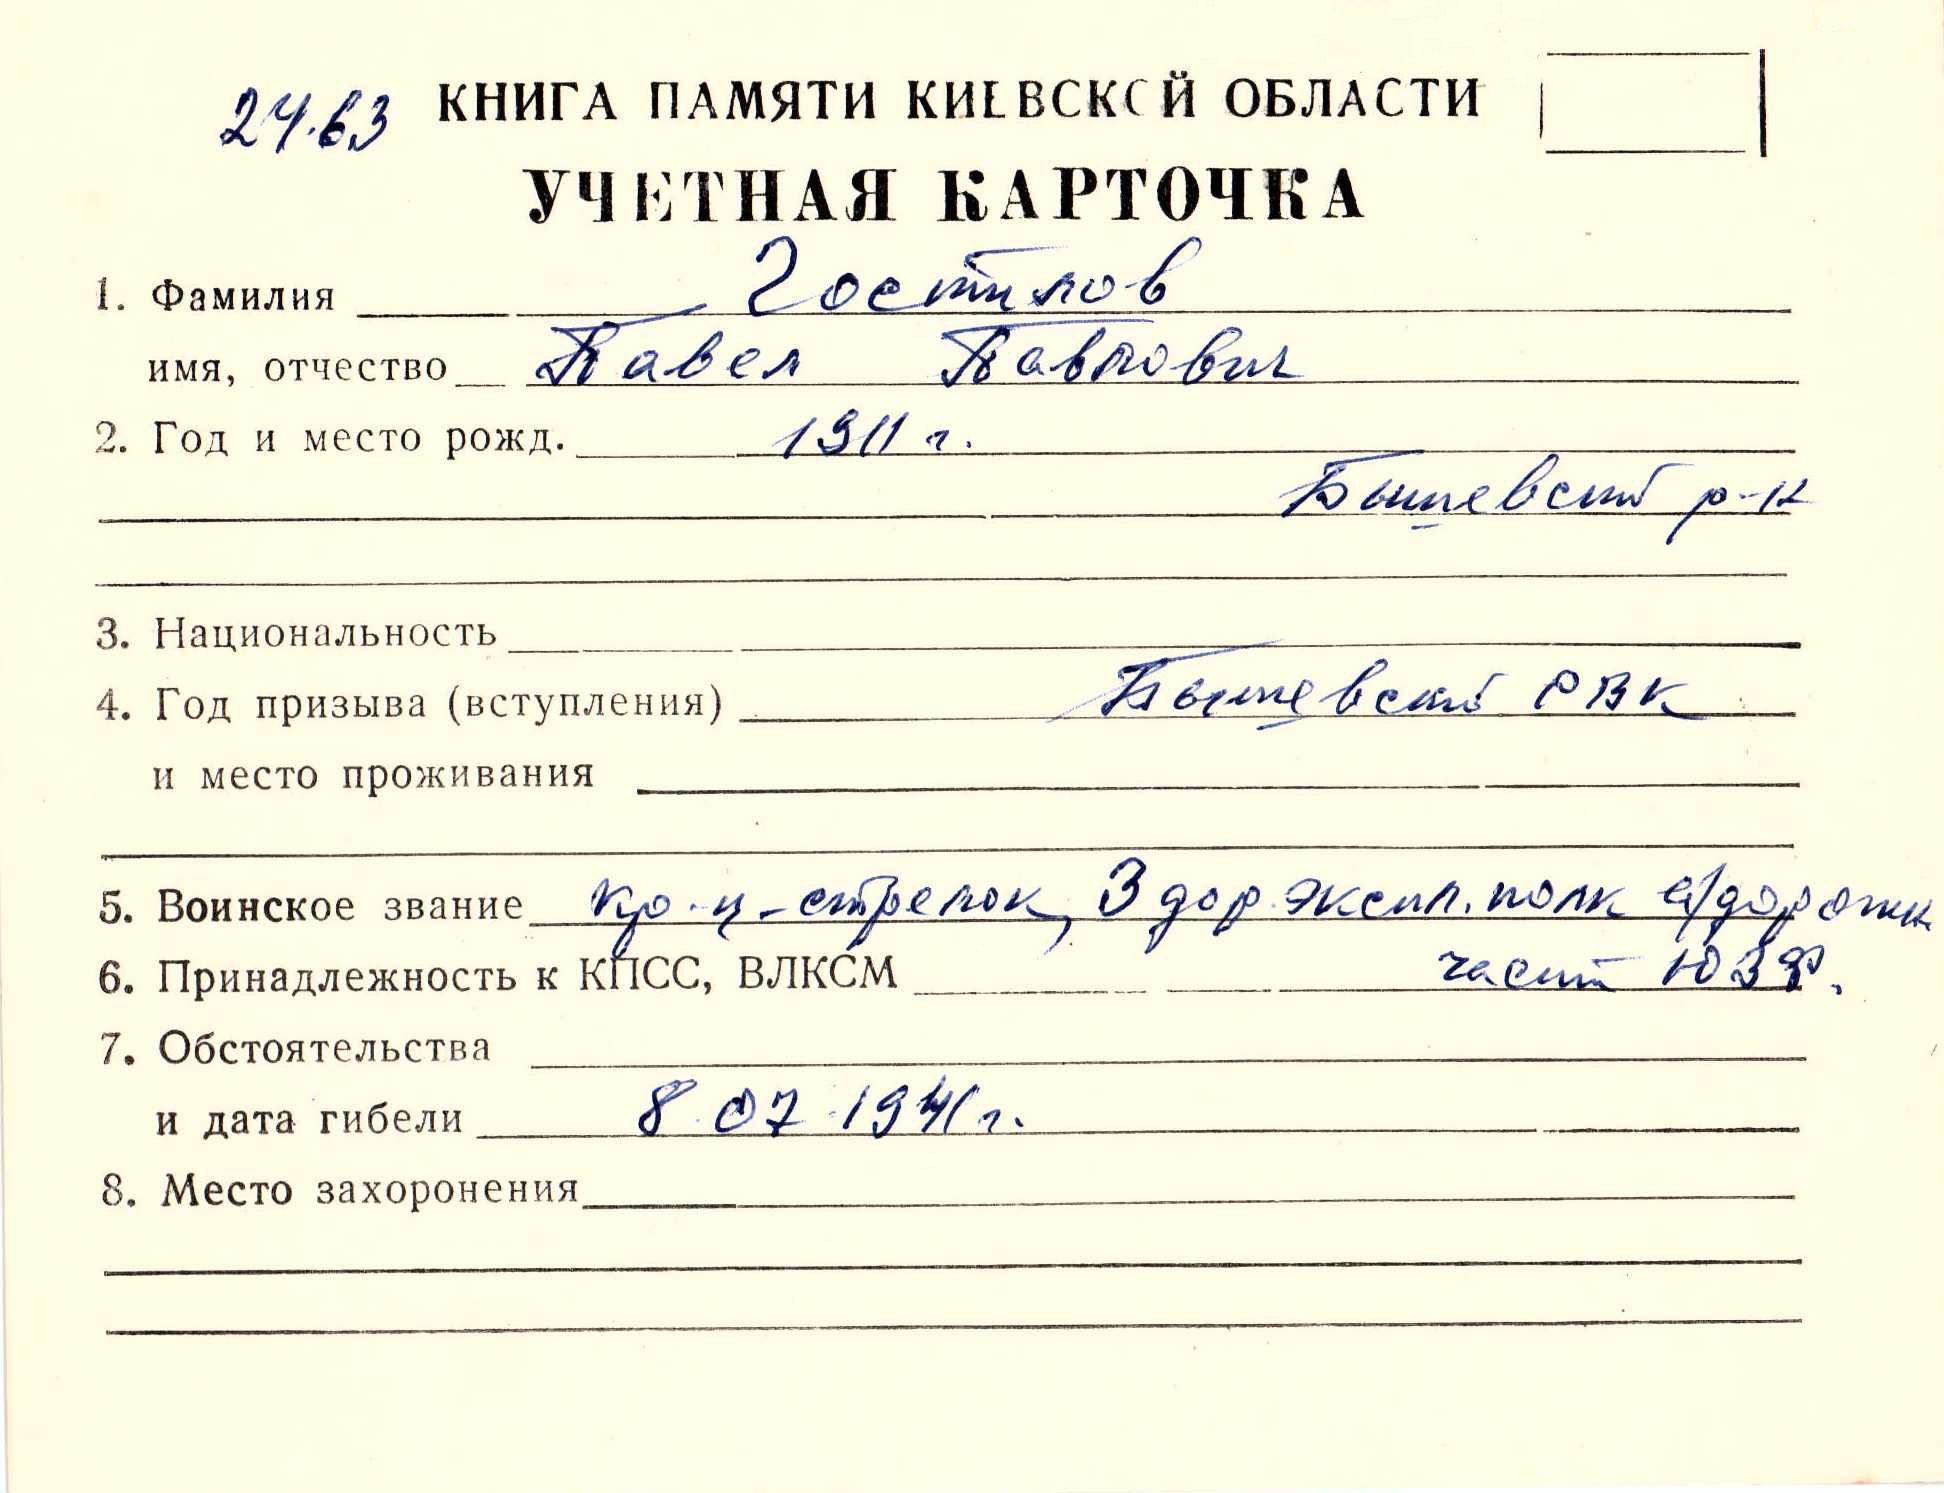 24.63 КНИГА ПАМЯТИ КИЕВСКОЙ ОБЛАСТИ
УЧЕТНАЯ КАРТОЧКА
1. Фамилия Гостилов
имя, отчество Павел Павлович
2. Год и место рожд. 1911 г.
Бышевский р-н
3. Национальность
4. Год призыва (вступления) Бышевский РВК
и место проживания
5. Воинское звание кр-ц-стрелок, 3 дор. экспл. полк а/дорожн
6. Принадлежность к КПСС, ВЛКСМ част ЮЗФ.
7. Обстоятельства
и дата гибели 8.07.1941 г.
8. Место захоронения